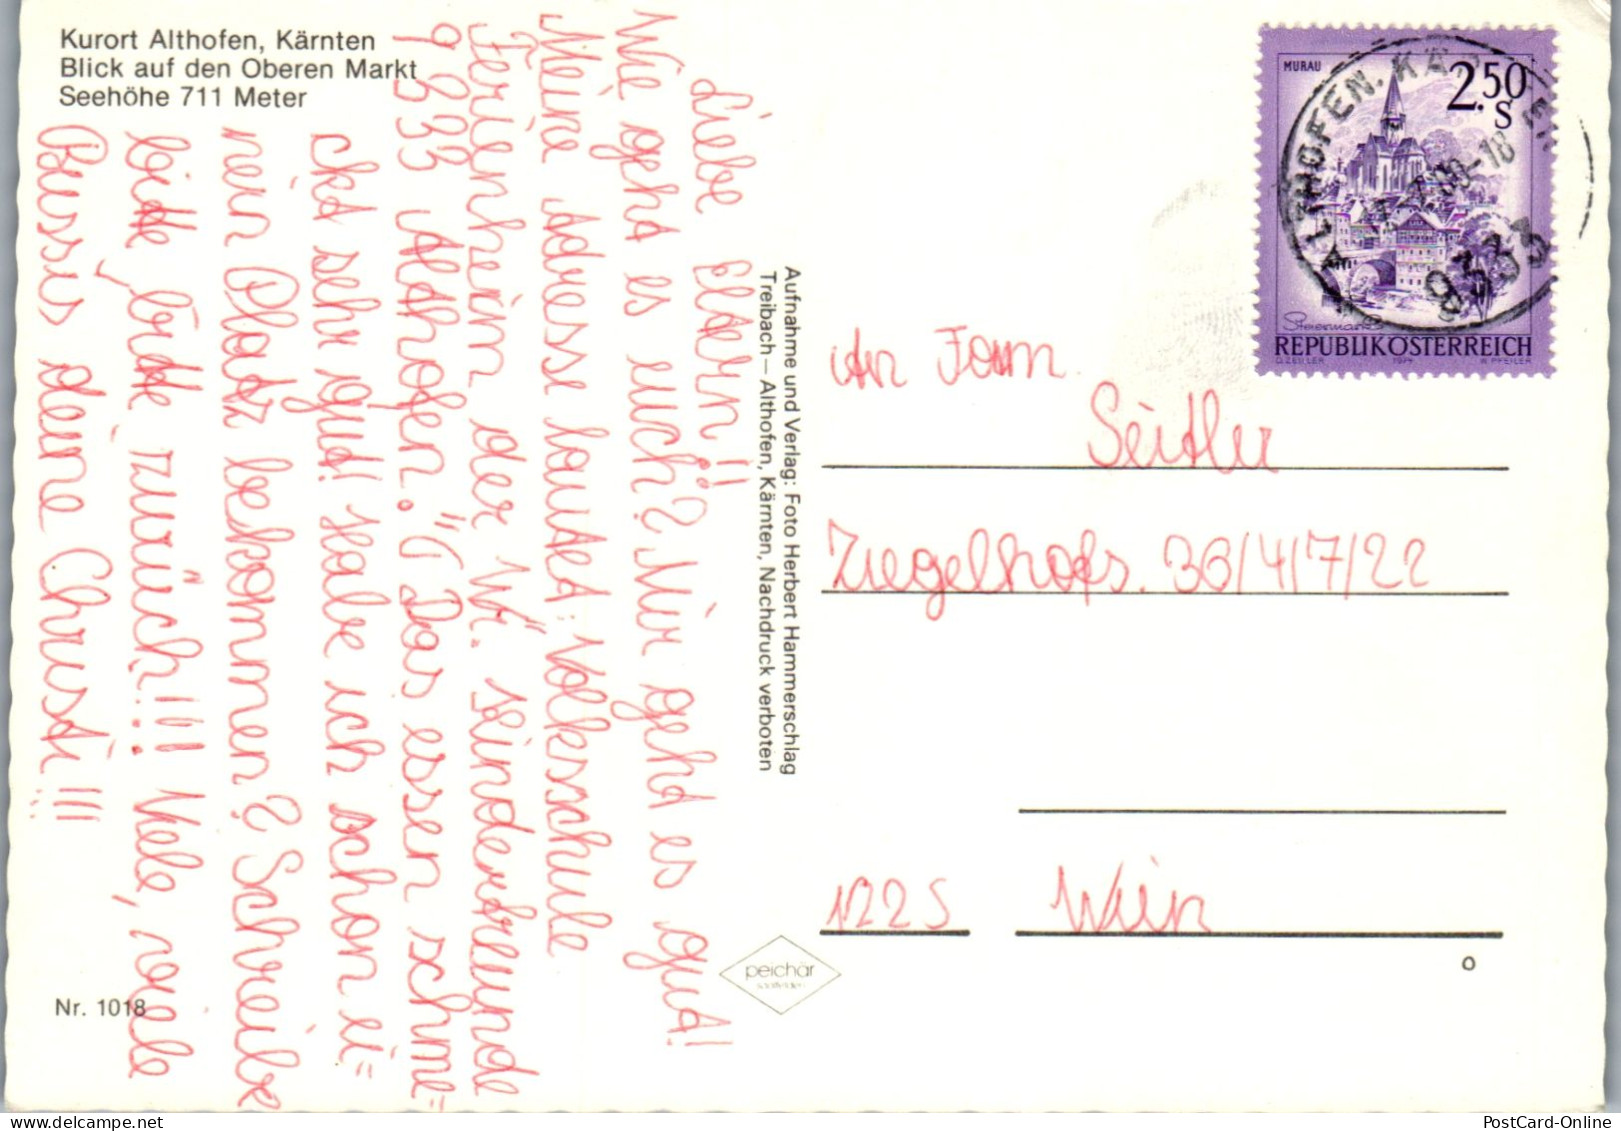 Kurort Althofen, Kärnten
Blick auf den Oberen Markt
Seehöhe 711 Meter
Liebe Eldern!!
Wie geht es euch? Mir geht es gut!
Meine Adresse lautet: Volksschule
Ferienheim der W. Kinderfreunde
9333 Althofen." Das essen schme=
ckt sehr gut! Habe ich schon ei=
nen Platz bekommen? Schreibe
bitte, bitte, zurück!!! Viele, viele
Bussis deine Christi!!!
Nr. 1018
Aufnahme und Verlag: Foto Herbert Hammerschlag
Treibach – Althofen, Kärnten, Nachdruck verboten
peichär
MURAU
2.50
S
Steiermark
REPUBLIK ÖSTERREICH
O. ZEILER 1974 W. PFEILER
ALTHOFEN. KÄ
-18
9333
An Fam.
Seitler
Ziegelhofs. 36/4/7/22
1225 Wien
o
PostCard-Online